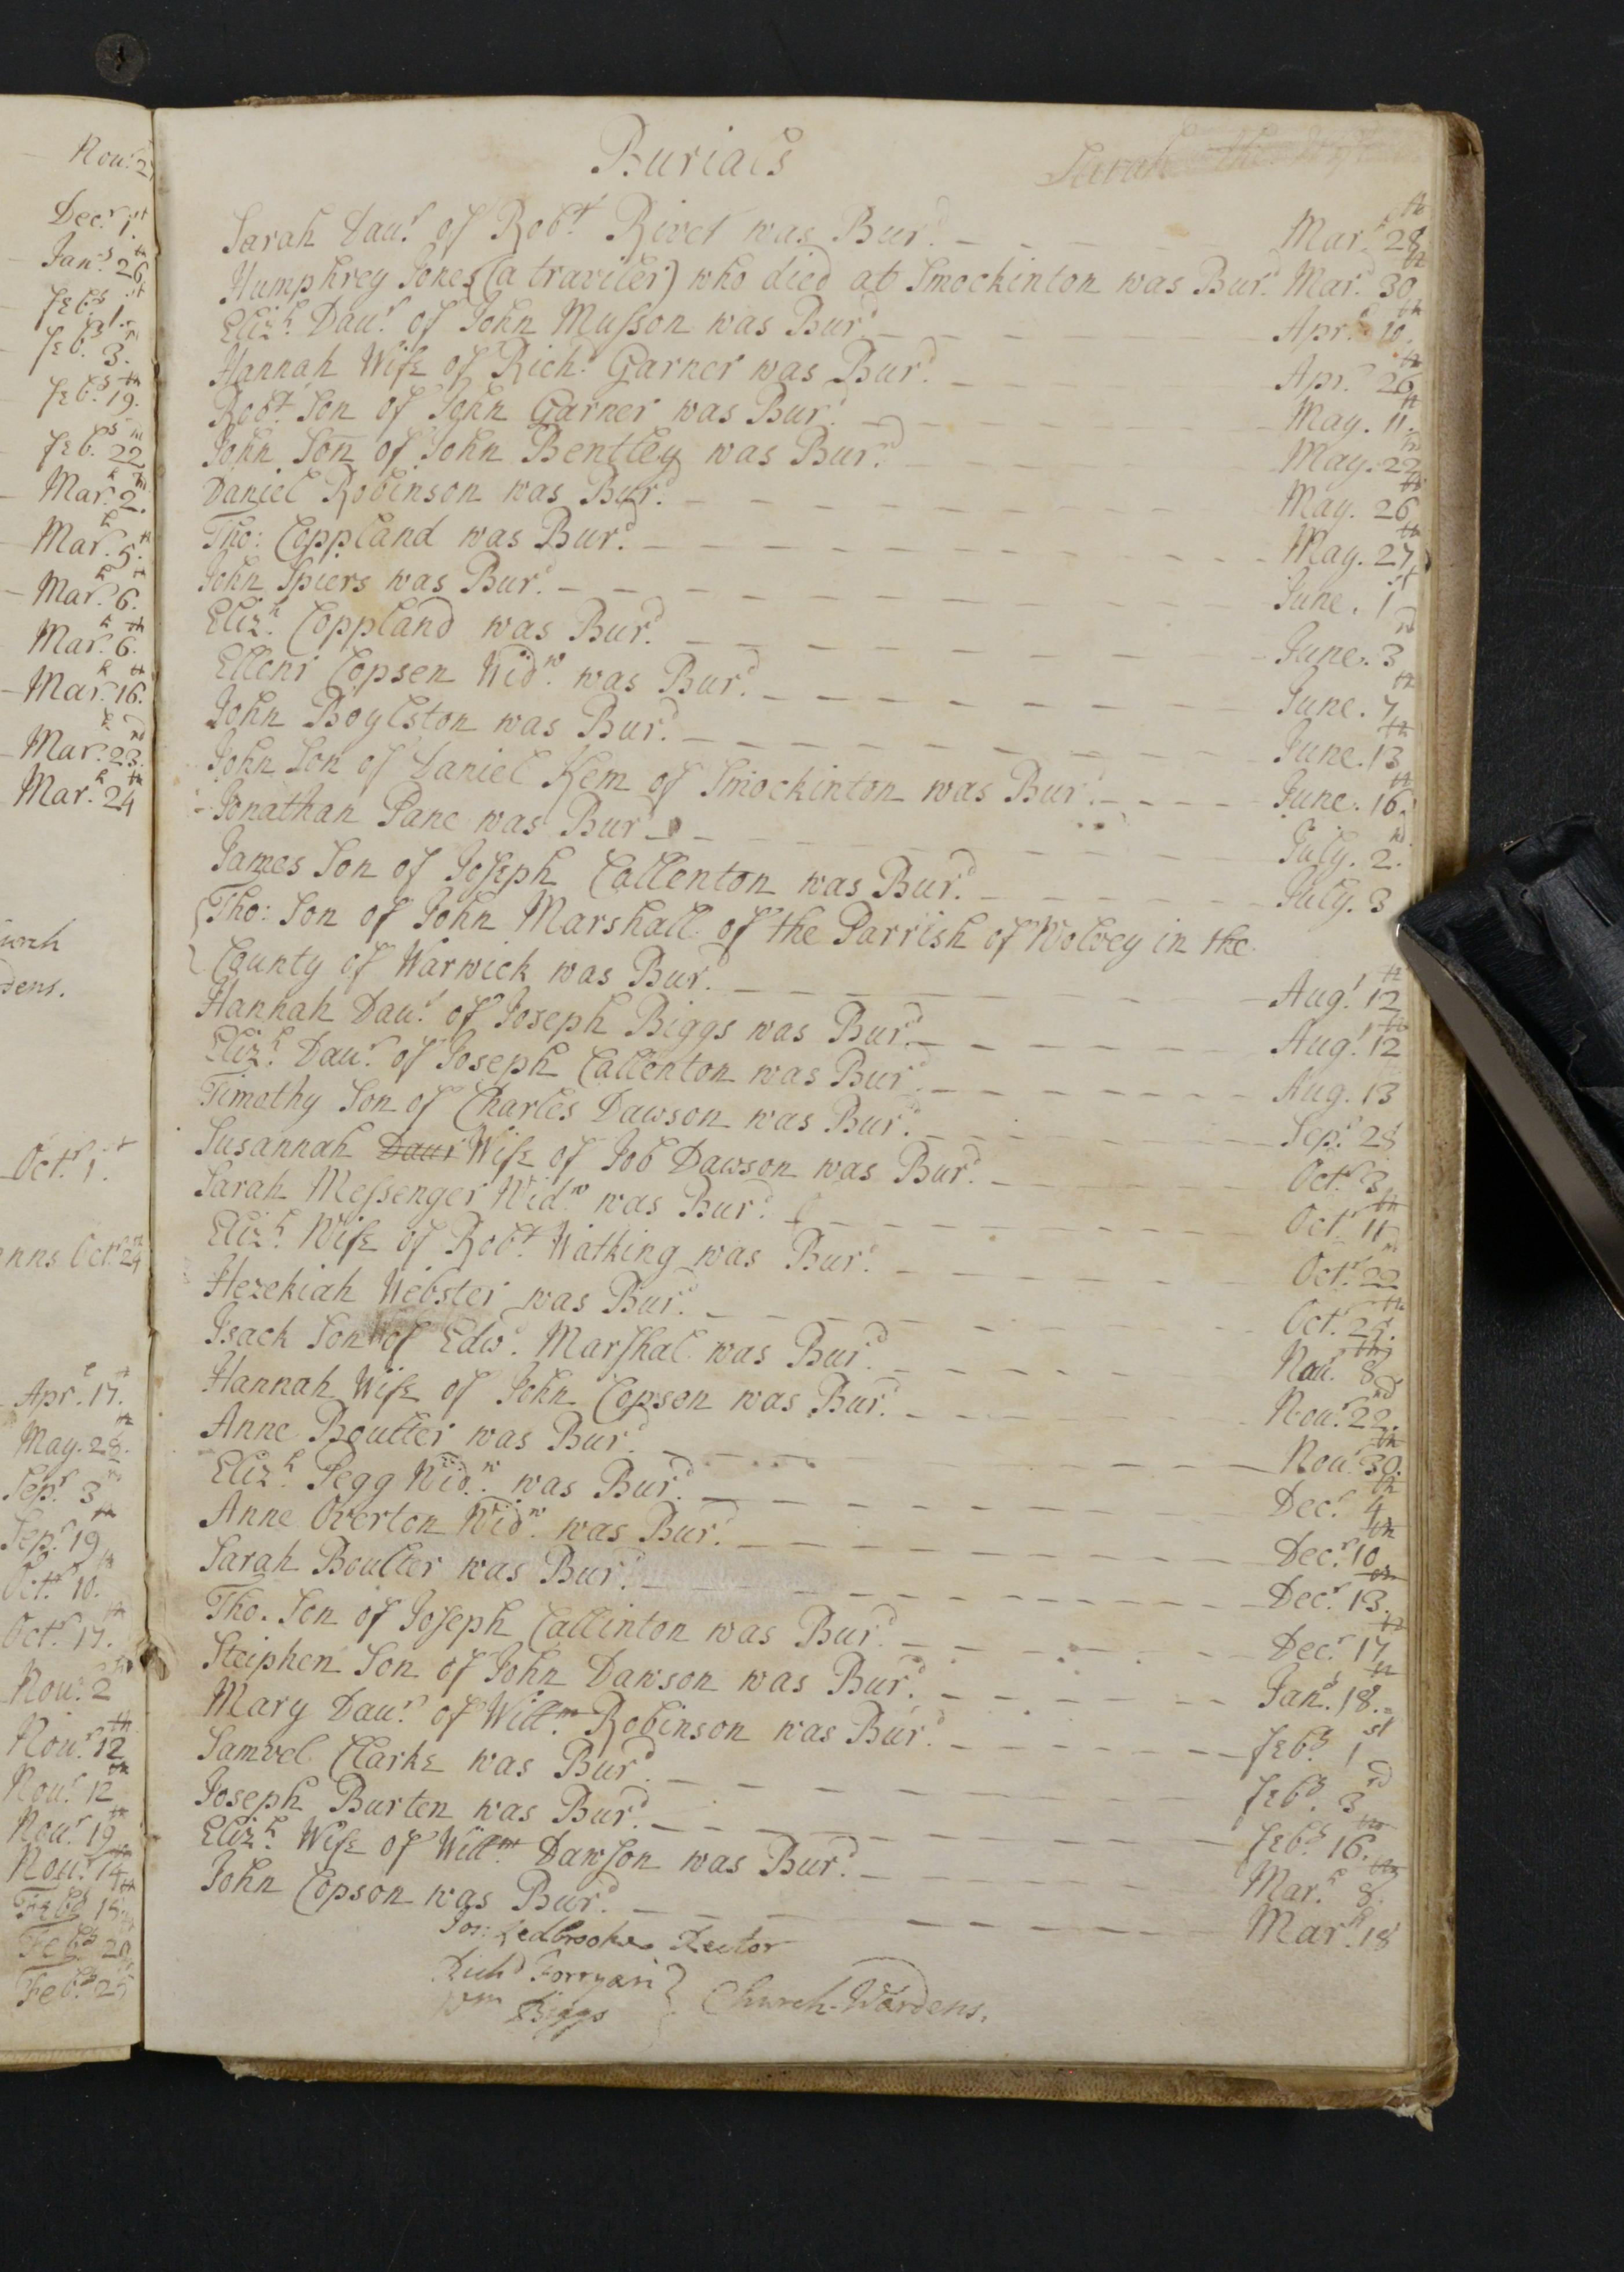 Nou.r 2
Dec.r 1.st
Jan.y 26.th
Feb.y 1.st
Feb.y 3.rd
Feb.y 19.th
Feb.y 22.nd
Mar.h 2.nd
Mar.h 5.th
Mar.h 6.th
Mar.h 6.th
Mar.h 16.th
Mar.h 23.rd
Mar.h 24.th
dens.
Oct.r 1.st
Oct.r 24
Apr.l 17.
May. 28.th
Sep.r 3.rd
Sep.r 19.th
Oct.r 10.th
Oct.r 17.th
Nou.r 2.nd
Nou.r 12.th
Nou.r 12.th
Nou.r 19.th
Nou.r 14.th
Feb.y 20
Burials
Sarah
Sarah Dau.r of Rob.t Rivet was Bur.d Mar.h 28.th
Humphrey Jones (a traviler) who died at Smockinton was Bur.d Mar. 30.th
Eliz.h Dau.r of John Musson was Bur.d Apr.l 10.th
Hannah Wife of Rich.d Garner was Bur.d Apr.l 26.th
Rob.t Son of John Garner was Bur.d May. 11.th
John Son of John Bentley was Bur.d May. 22.nd
Daniel Robinson was Bur.d May. 26.th
Tho: Coppland was Bur.d May. 27.th
John Spiers was Bur.d June. 1.st
Eliz.h Coppland was Bur.d June. 3.rd
Ellenr Copsen Wid.w was Bur.d June. 7.th
John Boylston was Bur.d June. 13.th
John Son of Daniel Kem of Smockinton was Bur.d June. 16.th
Jonathan Pane was Bur.d July. 2.nd
James Son of Joseph Callenton was Bur.d July. 3
Tho: Son of John Marshall of the Parrish of Wolvey in the
County of Warwick was Bur.d Aug.t 12.th
Hannah Dau.r of Joseph Biggs was Bur.d Aug.t 12.th
Eliz.h Dau.r of Joseph Callenton was Bur.d Aug. 13
Timothy Son of Charles Dawson was Bur.d Sep.r 28
Susannah Daur Wife of Job Dawson was Bur.d Oct.r 3
Sarah Messenger Wid.w was Bur.d Oct.r 11.th
Eliz.h Wife of Rob.t Watking was Bur.d Oct.r 22.nd
Hezekiah Webster was Bur.d Oct.r 24.th
Isack Son of Edw.d Marshal was Bur.d Nou.r 8.th
Hannah Wife of John Copson was Bur.d Nou.r 22.nd
Anne Boulter was Bur.d Nou.r 30.th
Eliz.h Pegg Wid.w was Bur.d Dec.r 4.th
Anne Overton Wid.w was Bur.d Dec.r 10.th
Sarah Boulter was Bur.d Dec.r 13.th
Tho. Son of Joseph Callinton was Bur.d Dec.r 17.th
Steiphen Son of John Dawson was Bur.d Jan.y 18.th
Mary Dau.r of Will.m Robinson was Bur.d Feb.y 1.st
Samvel Clarke was Bur.d Feb.y 3.rd
Joseph Burten was Bur.d Feb.y 16.th
Eliz.h Wife of Will.m Dawson was Bur.d Mar.h 8.th
John Copson was Bur.d Mar.h 18
Jos: Ledbrooke Rector
Rich.d Forryan
Wm Biggs } Church-Wardens.